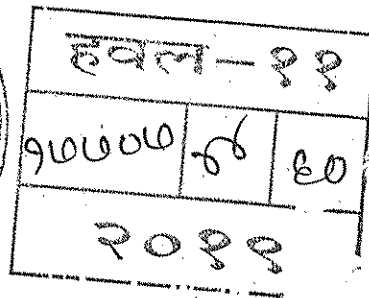 हवल-११
१७७०७ ६०
२०११